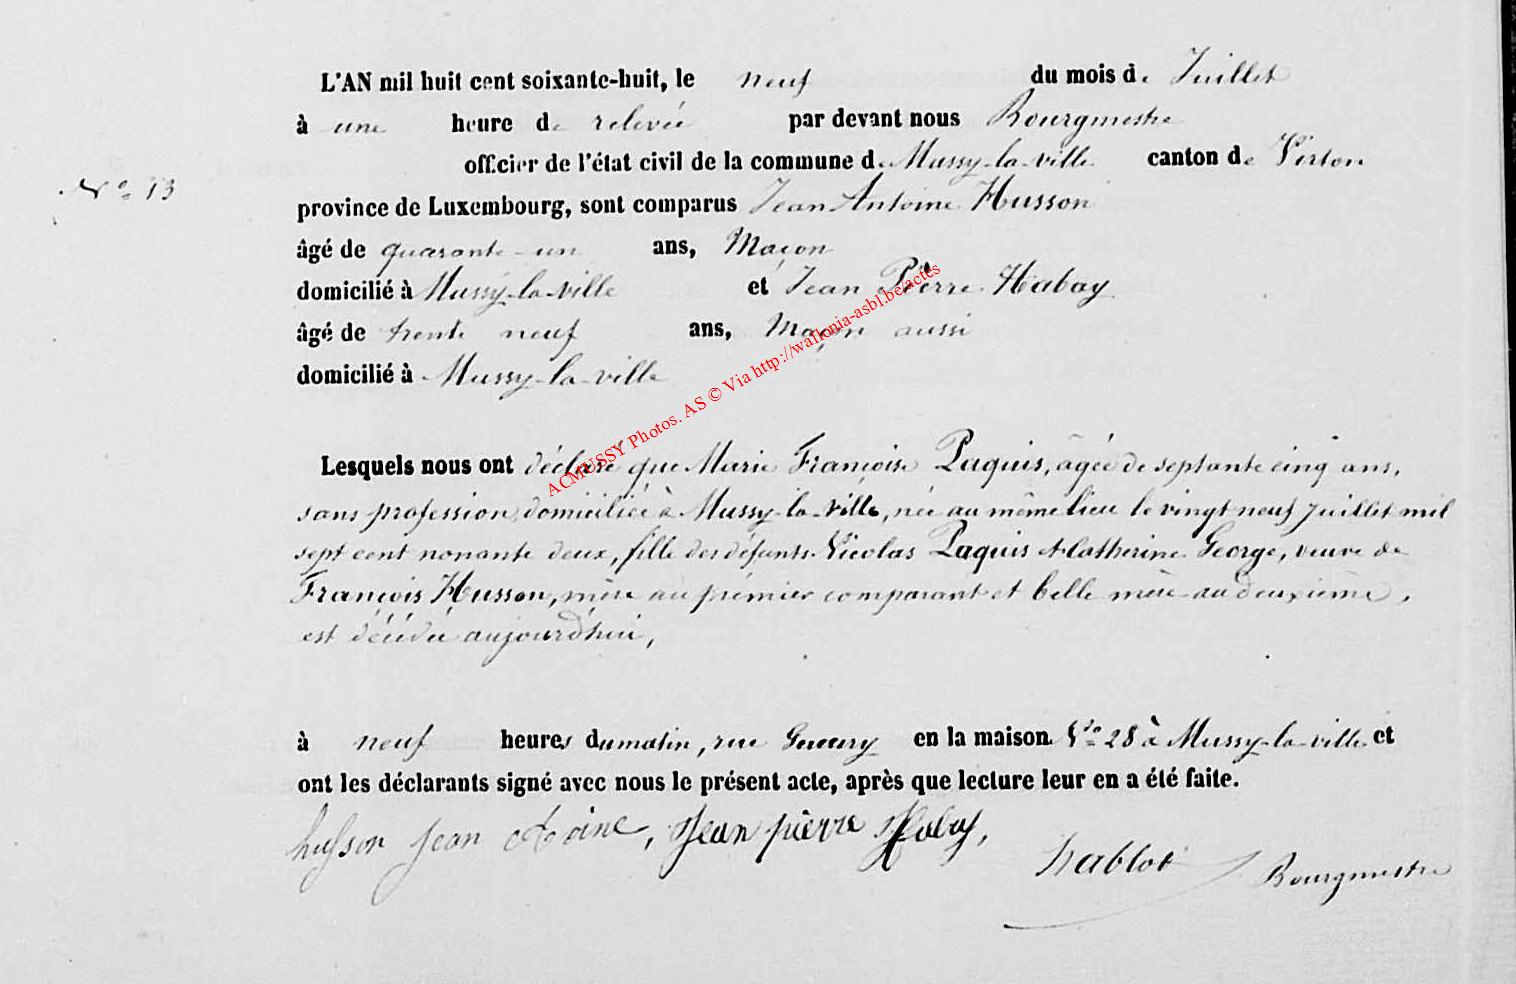 L'AN mil huit cent soixante-huit, le neuf du mois de Juillet
à une heure de relevée par devant nous Bourgmestre
officier de l'état civil de la commune de Mussy-la-ville canton de Virton
N° 13
province de Luxembourg, sont comparus Jean Antoine Husson
âgé de quarante-un ans, Maçon
domicilié à Mussy-la-ville et Jean Pierre Habay
âgé de trente neuf ans, Maçon aussi
domicilié à Mussy-la-ville
ACMUSSY Photos. AS © Via http://wallonia-asbl.be/actes
Lesquels nous ont déclaré que Marie Françoise Paquis, âgée de septante cinq ans,
sans profession, domiciliée à Mussy-la-ville, née au même lieu le vingt neuf Juillet mil
sept cent nonante deux, fille des défunts Nicolas Paquis et Catherine George, veuve de
François Husson, mère au prémier comparant et belle mère au deuxième,
est décédée aujourd'hui,
à neuf heures du matin, rue en la maison N° 28 à Mussy-la-ville et
ont les déclarants signé avec nous le présent acte, après que lecture leur en a été faite.
husson jean Jean pierre Habay,
Bourgmestre